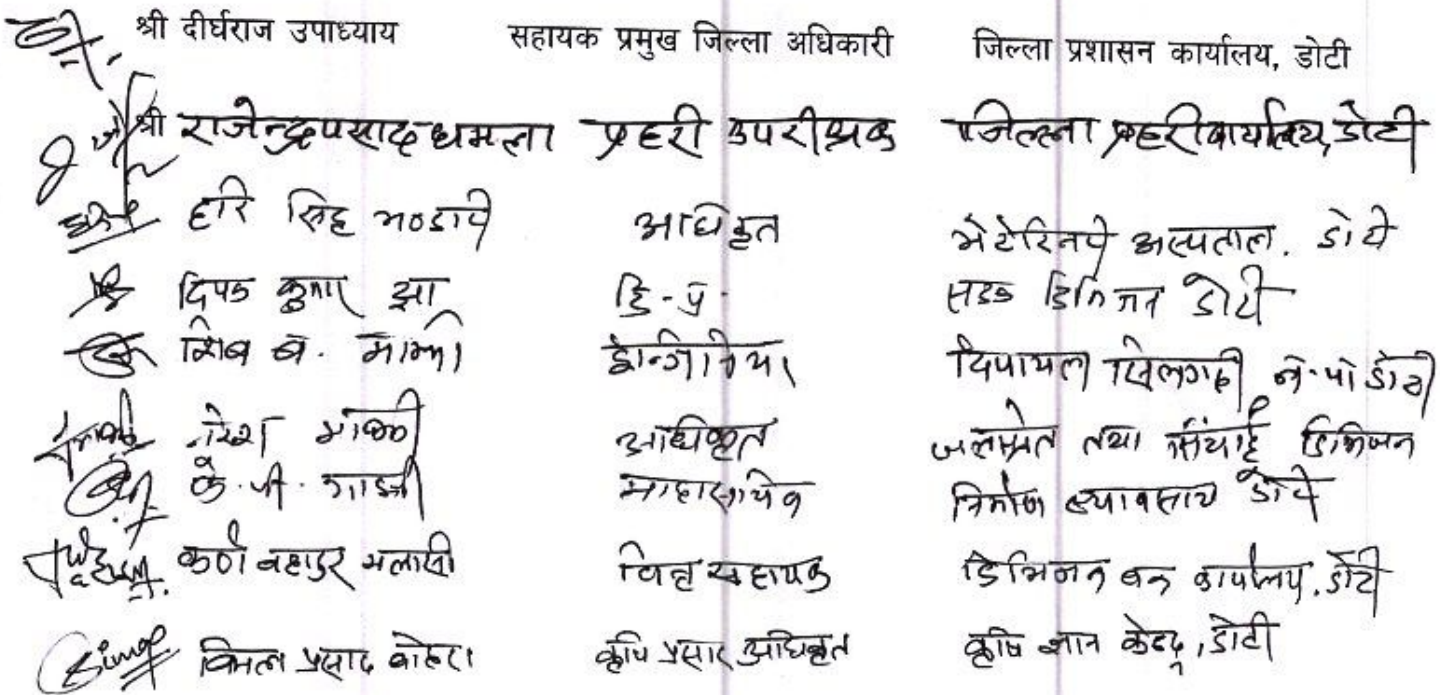 श्री दीर्घराज उपाध्याय सहायक प्रमुख जिल्ला अधिकारी जिल्ला प्रशासन कार्यालय, डोटी
श्री राजेन्द्रप्रसाद धमला प्रहरी उपरीक्षक जिल्ला प्रहरी कार्यालय, डोटी
हरि सिंह भण्डारी अधिकृत भेटेरिनरी अस्पताल. डोटी
दिपक कुमार झा डि.प्र. सडक डिभिजन डोटी
शिव ब. इन्जिनियर दिपायल सिलगढी न.पा डोटी
नरेश अधिकृत जलस्रोत तथा सिंचाई डिभिजन
के.पी. निर्माण व्यावसाय डोटी
कर्ण बहादुर मलासी वित्त सहायक डिभिजन वन कार्यालय. डोटी
विमल प्रसाद बोहरा कृषि प्रसार अधिकृत कृषि ज्ञान केन्द्र, डोटी